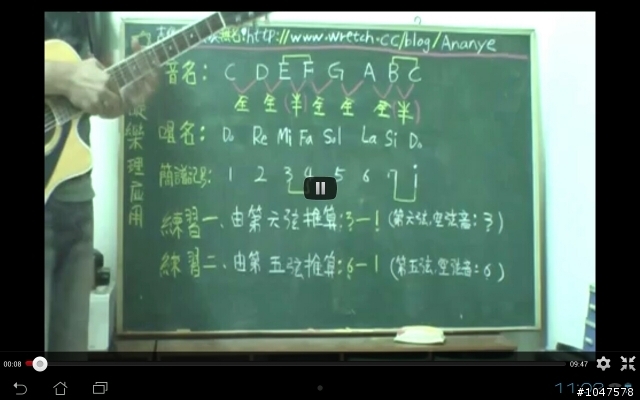 http://www.wretch.cc/blog/Ananye
音名: C D E F G A B C
全 全 (半) 全 全 全 (半)
唱名: Do Re Mi Fa Sol La Si Do
簡譜記号: 1 2 3 4 5 6 7 i
樂理應用
練習一、由第六弦推算:3-1 (第六弦,空弦音:3)
練習二、由第五弦推算:6-1 (第五弦,空弦音:6)
00:08
09:47
#1047578